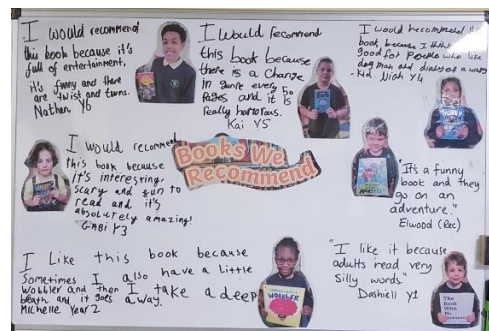 I would recommend
this book because it's
full of entertainment,
it's funny and there
are twist and turns.
Nathan Y6
I would recommend
this book because
there is a change
in genre every 50
Pages and it is
really humorous.
Kai Y5
I would reccommend this
book, because I think
good for people who like
dog man and diary of a wimpy
kid Y4
I would recommend
this book because
it's interesting,
scary and fun to
read and it's
absolutely amazing!
GABi Y3
Books We
Recommend
"It's a funny
book and they
go on an
adventure."
Elwood (Rec)
I Like this book because
Sometimes I also have a Little
Wobbler and then I take a deep
breath and it goes away.
Michelle Year 2
WOBBLER
"I like it because
adults read very
Silly words."
Dashiell Y1
The
Book With
No
Pictures